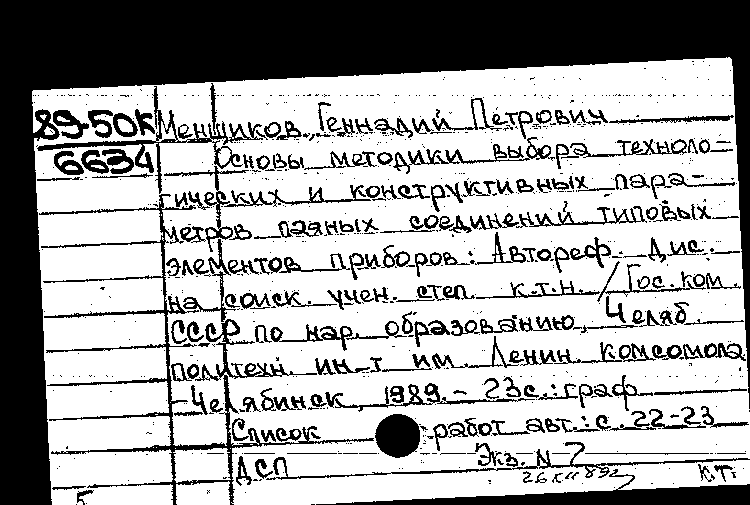 89-50К Меншиков, Геннадий Петрович
6634 Основы методики выбора техноло-
гических и конструктивных пара-
метров паяных соединений типовых
элементов приборов: Автореф. дис.
на соиск. учен. степ. к.т.н. / Гос. ком.
СССР по нар. образованию, Челяб.
политехн. ин-т им. Ленин. комсомола
-Челябинск, 1989.- 23с.: граф
Список работ авт.: с. 22-23
ДСП Экз. N 7
К.Т.
5